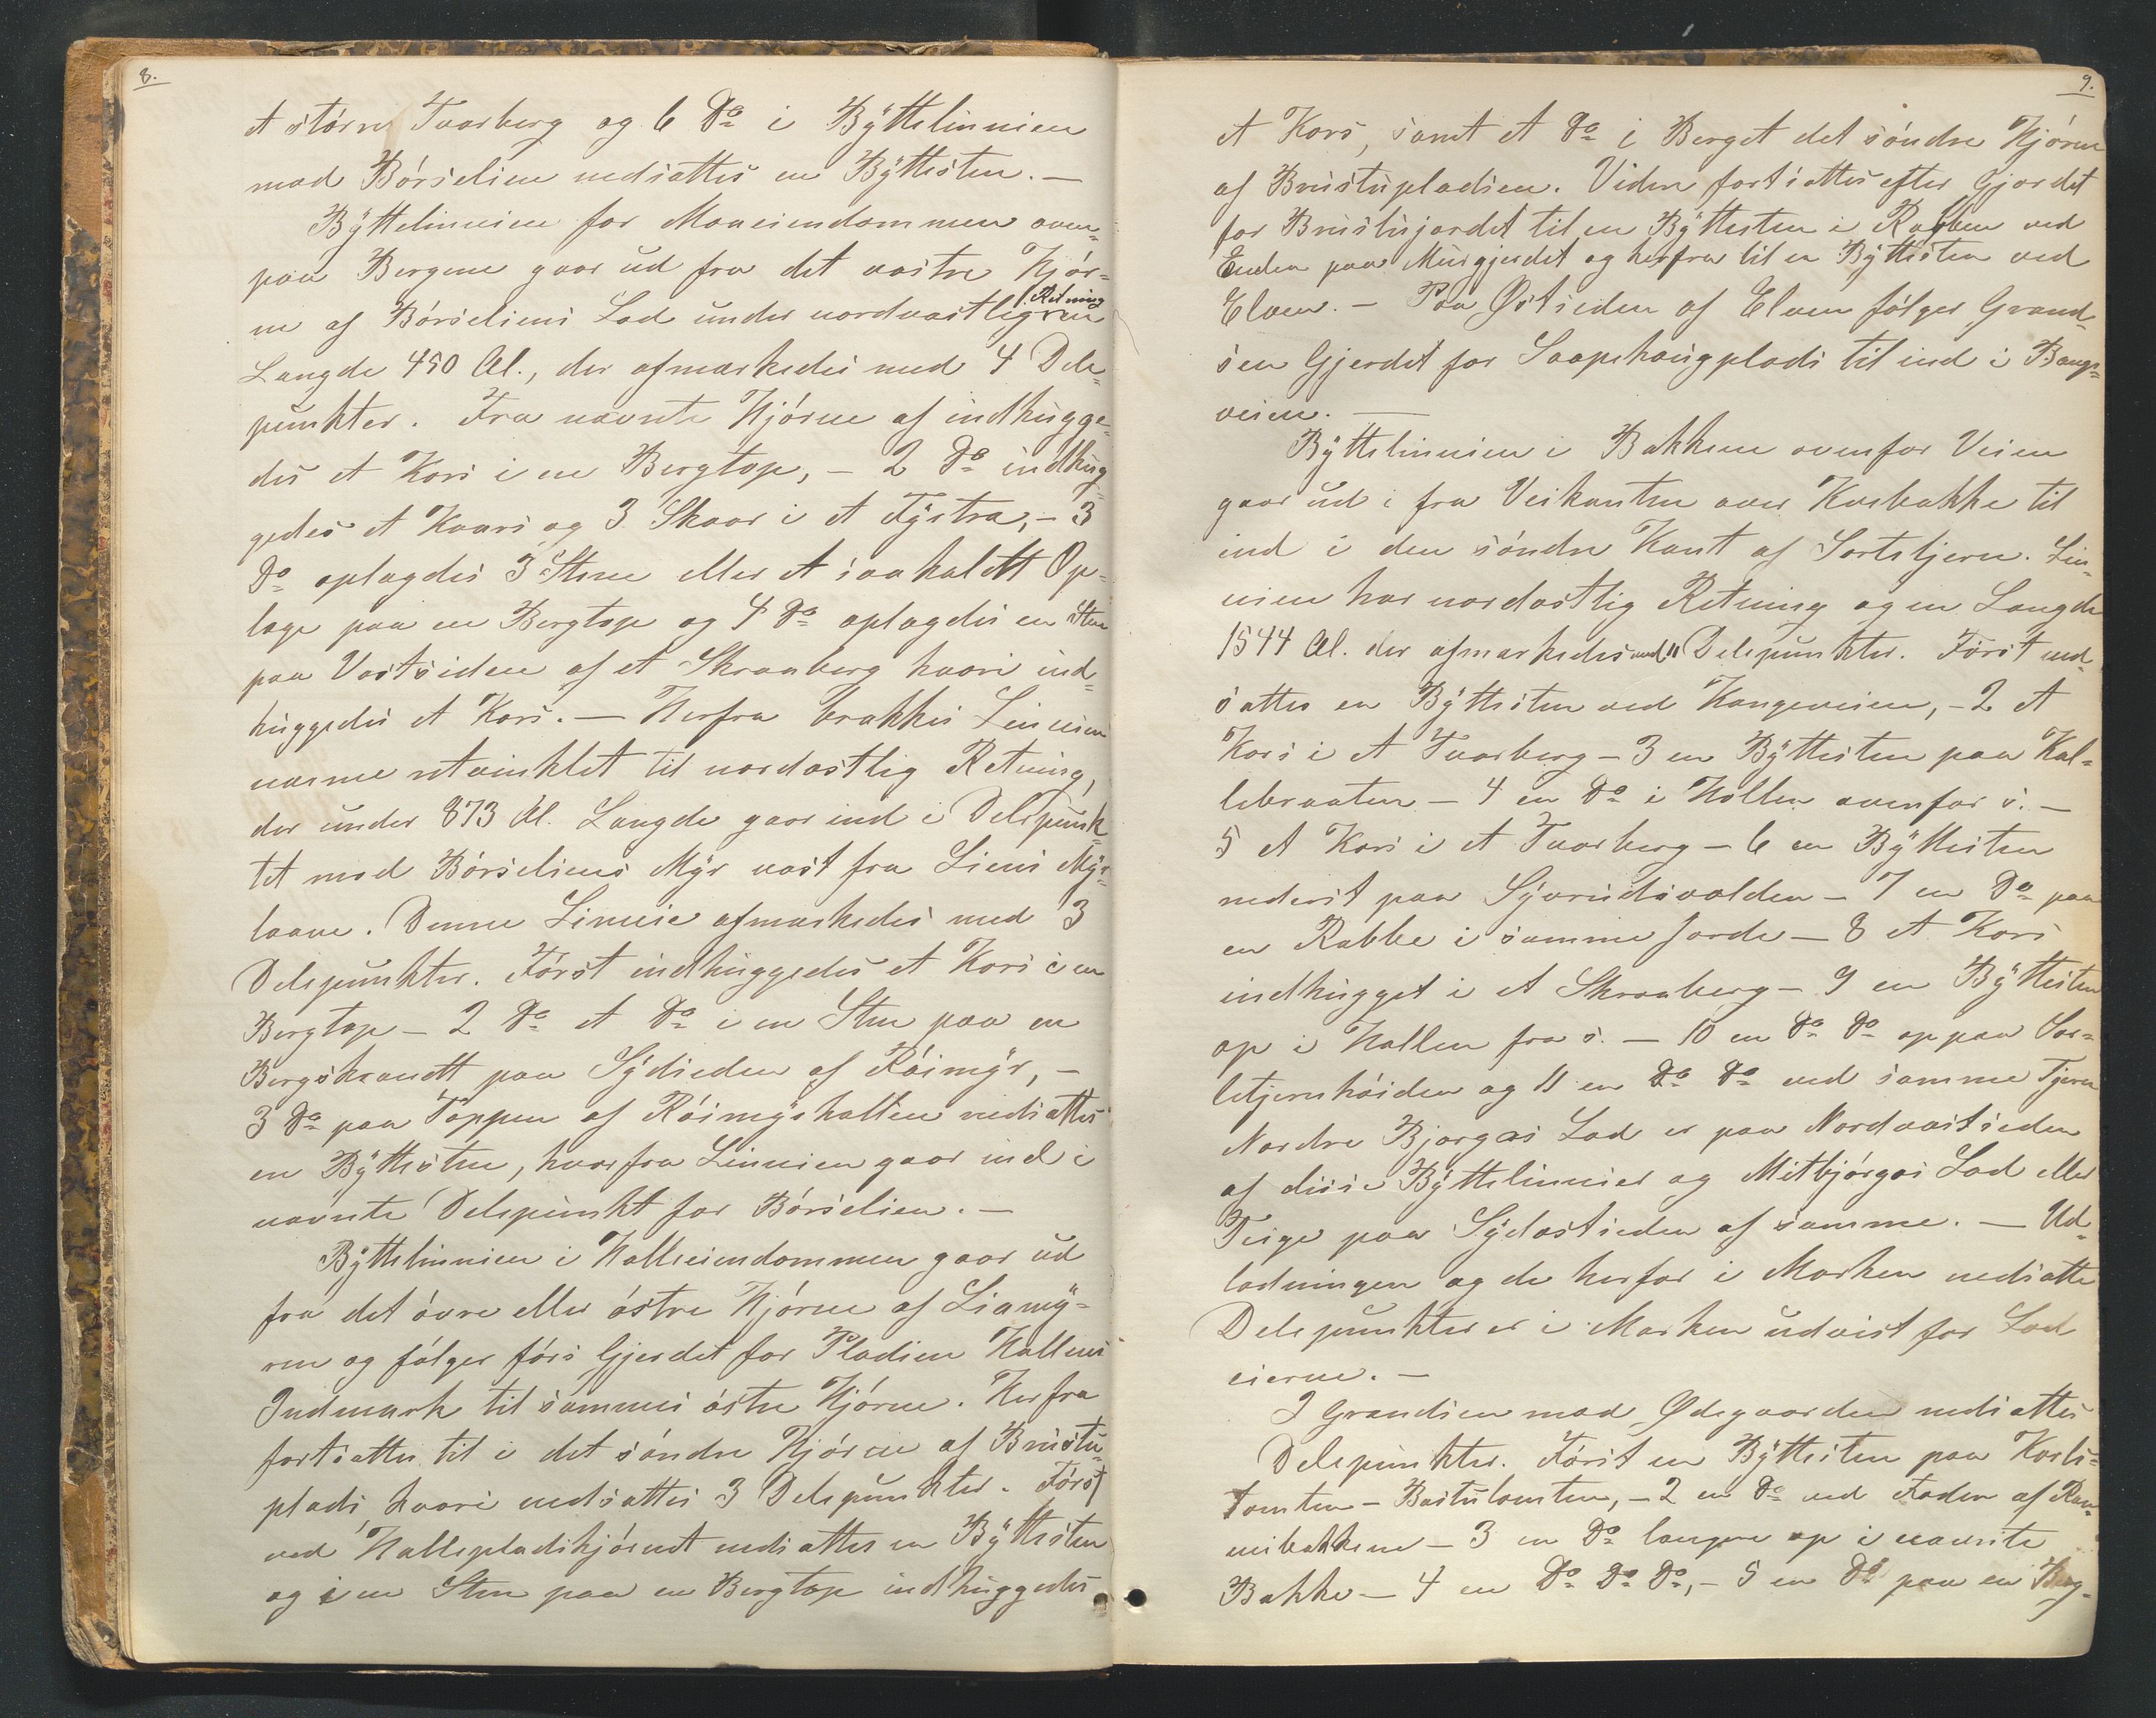 8.
et större Tvarberg og 6 Do i Byttelinnien
mod Börselien nedsattes en Byttesten. —
Byttelinnien for Moneiendommen oven-
paa Bergene gaar ud fra det vestre Hjör-
ne af Börseliens Lod under nordvestlig Retning
Længde 450 Al., der afmærkedes med 4 Dele-
punkter. Fra nævnte Hjörne af indhugge-
des et Kors i en Bergtop, – 2 Do indhug-
gedes et Kaars og 3 Skaar i et Fystra, – 3
Do oplagdes 3 Stene eller et saakaldt Op-
lage paa en Bergtop og 4 Do oplagdes en Sten
paa Vestsiden af et Skraaberg hvori ind-
huggedes et Kors. — Herfra brækkes Linnien
næsme retvinklet til nordøstlig Retning,
der under 873 Al. Længde gaar ind i Delepunk-
tet mod Börseliens Myr væst fra Liens Myr-
laane. Denne Linnie afmærkedes med 3
Delepunkter. Först indhuggedes et Kors i en
Bergtop – 2 Do et Do i en Sten paa en
Bergskrandt paa Sydsieden af Röimyr, –
3 Do paa Toppen af Röimyshatten nedsattes
en Byttesten, hvorfra Linnien gaar ind i
nævnte Delepunkt for Börselien. –
Byttelinnien i Halleiendommen gaar ud
fra det övre eller östre Hjörne af Liamy-
ren og fölger förs Gjerdet for Pladsen Hallens
Indmark til sammes östre Hjörne. Herfra
fortsattes til i det söndre Hjörne af Brustu-
plads, hvori nedsattes 3 Delepunkter. Först
ved Hallepladshjörnet nedsattes en Byttesten
og i en Sten paa en Bergtop indhuggedes
9.
et Kors, samt et Do i Berget det söndre Hjörne
af Brustupladsen. Videre fortsattes efter Gjerdet
for Brustujordet til en Byttesten i Rabben ved
Enden paa Murgjerdet og herfra til en Byttesten ved
Elven. – Paa Østsieden af Elven fölger Grænd-
sen Gjerdet for Saapehaugplads til ind i Bangs-
veien. —
Byttelinnien i Bakkene ovenfor Veien
gaar ud i fra Veikanten over Korbakke til
ind i den söndre Kant af Sortetjern. Lin-
nien har nordøstlig Retning og en Længde
1544 Al. der afmærkedes med 11 Delepunkter. Först ned-
sattes en Byttesten ved Kongeveien, – 2 et
Kors i et Tvarberg – 3 en Byttesten paa Kal-
lebraaten – 4 en Do i Hollen ovenfor s. –
5 et Kors i et Tvarberg – 6 en Byttesten
nederst paa Syverudsvolden – 7 en Do paa
en Rabbe i samme Jorde – 8 et Kors
indhugget i et Skraaberg – 9 en Byttesten
op i Hallen fra s. – 10 en Do Do oppaa Sor-
letjernhöiden og 11 en Do Do ved samme Tjern
Nordre Bjørges Lod er paa Nordvestsieden
af disse Byttelinnier og Mitbjörges Lod eller
Teige paa Sydostsieden af samme. — Ud-
lodningen og de herfor i Marken nedsatte
Delepunkter er i Marken udvist for Lod-
eierne. –
I Grændsen mod Ødegaarden nedsattes
Delepunkter. Först en Byttesten paa Korls-
tomten – Bastutomten, – 2 en Do ved Foden af Ram-
meibakkene – 3 en Do længere op i nævnte
Bakke – 4 en Do Do Do, – 5 en Do paa en Berg-